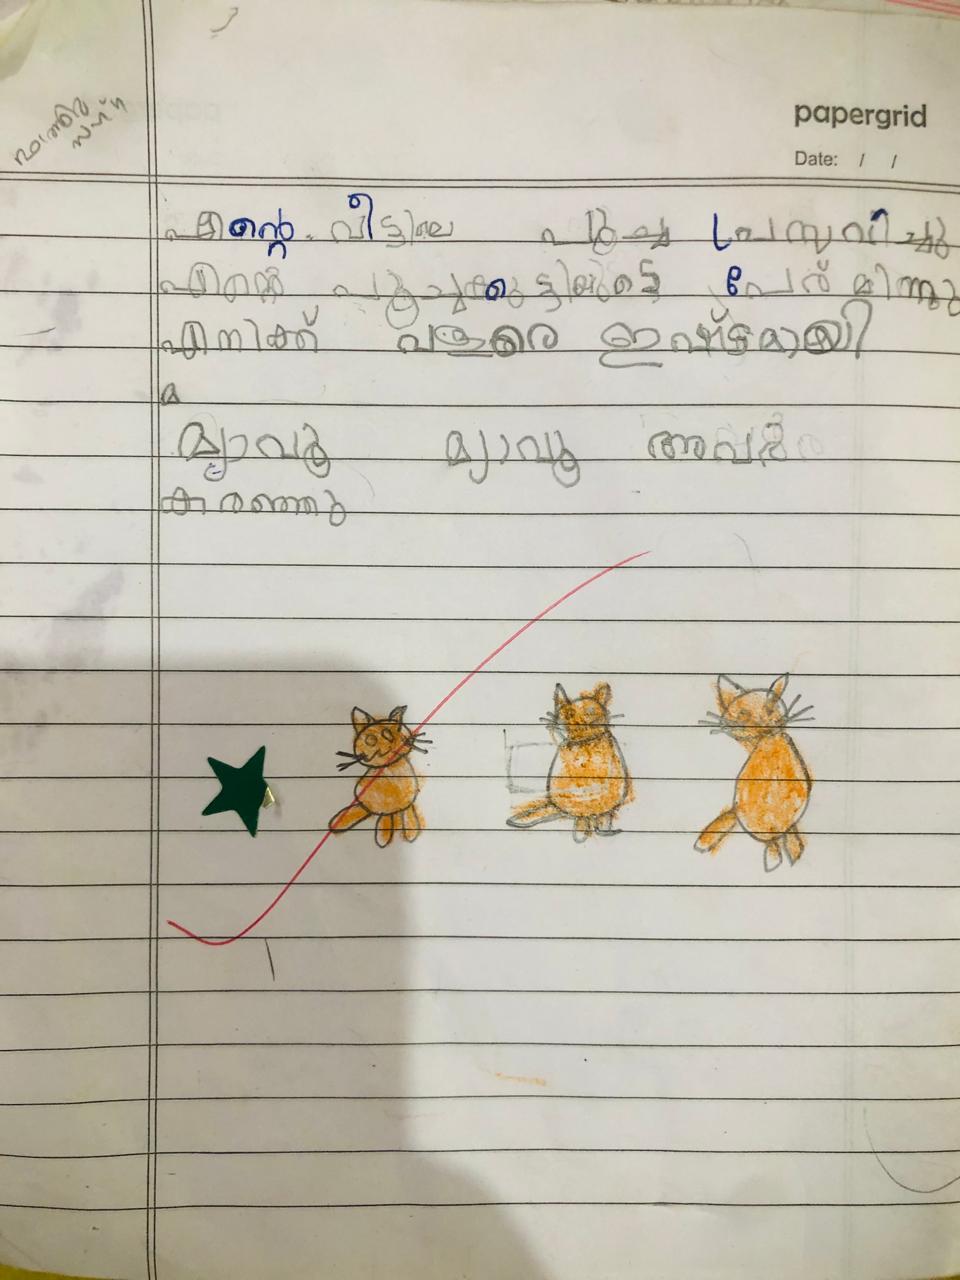 papergrid
Date: / /
എന്റെ വീട്ടിലെ പൂച്ച പ്രസവിച്ചു
എന്റെ പൂച്ചക്കുട്ടിയുടെ പേര് മിന്നു
എനിക്ക് വളരെ ഇഷ്ടമായി
മ
മ്യാവൂ മ്യാവൂ അവർ
കരഞ്ഞു